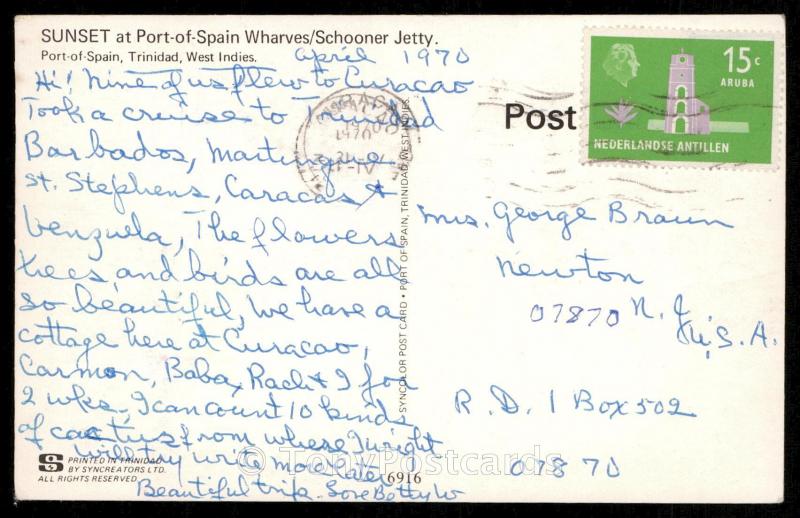 SUNSET at Port-of-Spain Wharves/Schooner Jetty.
Port-of-Spain, Trinidad, West Indies.
April 1970
Hi! Nine of us flew to Curacao
Took a cruise to Trinidad
Barbados, Martinque
St. Stephens, Caracas &
Venzuela, The flowers
trees and birds are all
so beautiful, We have a
cottage here at Curacao,
Carmon, Baba, Rach & I for
2 wks, I can count 10 kinds
of cactus from where I wright
will try write more later
Beautiful trip. Love Betty W
PRINTED IN TRINIDAD
BY SYNCREATORS LTD.
ALL RIGHTS RESERVED
6916
SYNCOLOR POST CARD • PORT OF SPAIN, TRINIDAD, WEST INDIES
Post
15c
ARUBA
NEDERLANDSE ANTILLEN
Mrs. George Braun
Newton
07870 N. J
U.S.A.
R.D. 1 Box 502
07870
© TonyPostcards